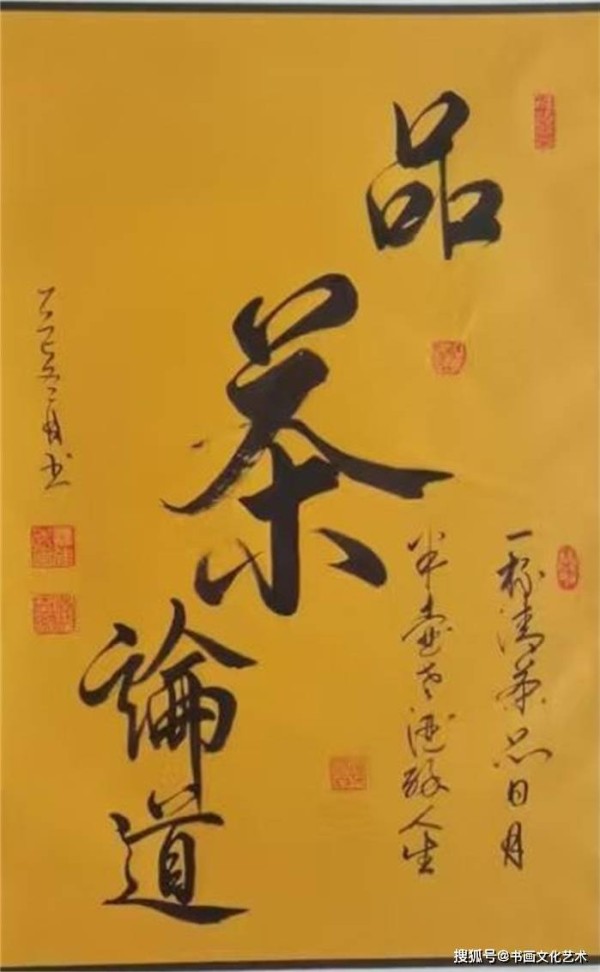 品茶論道
一杯清茶品日月
半壶老酒醉人生
月书
搜狐号@书画文化艺术